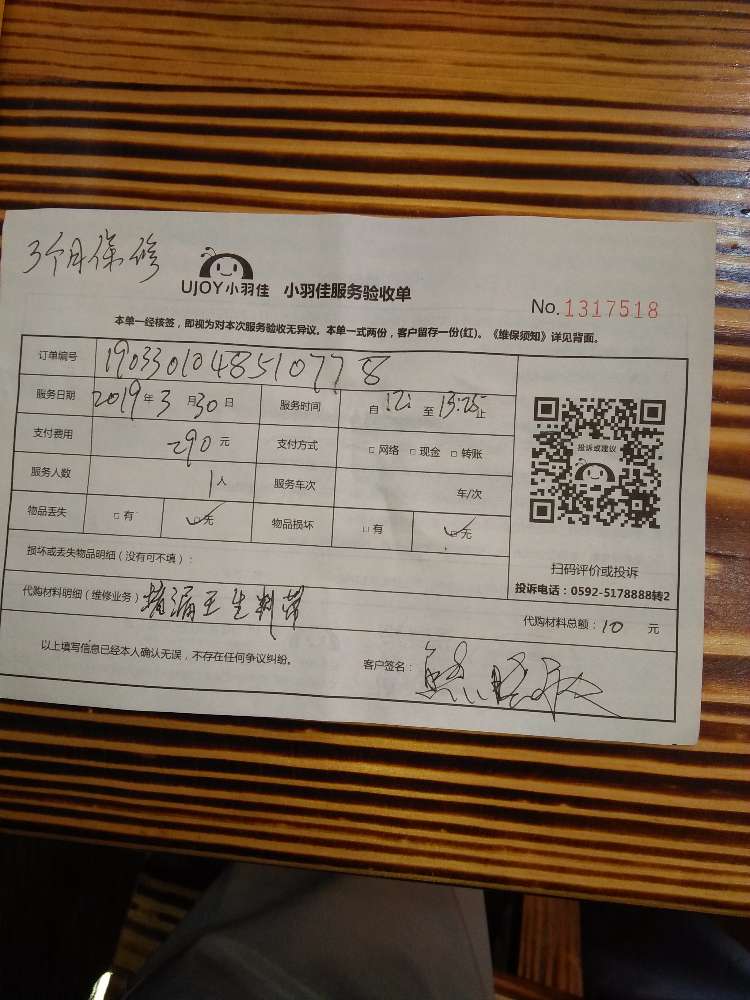 3个月保修
UJOY小羽佳 小羽佳服务验收单
No.1317518
本单一经核签，即视为对本次服务验收无异议。本单一式两份，客户留存一份(红)。《维保须知》详见背面。
订单编号 190330104851077 8
服务日期 2019年3月30日 服务时间 自12: 至13:25止
支付费用 290元 支付方式 □网络 □现金 □转账
服务人数 1人 服务车次 车/次
物品丢失 □有 □无 物品损坏 □有 □无
投诉或建议
损坏或丢失物品明细（没有可不填）：
扫码评价或投诉
投诉电话：0592-5178888转2
代购材料明细（维修业务） 堵漏王生料带
代购材料总额：10元
以上填写信息已经本人确认无误，不存在任何争议纠纷。 客户签名：